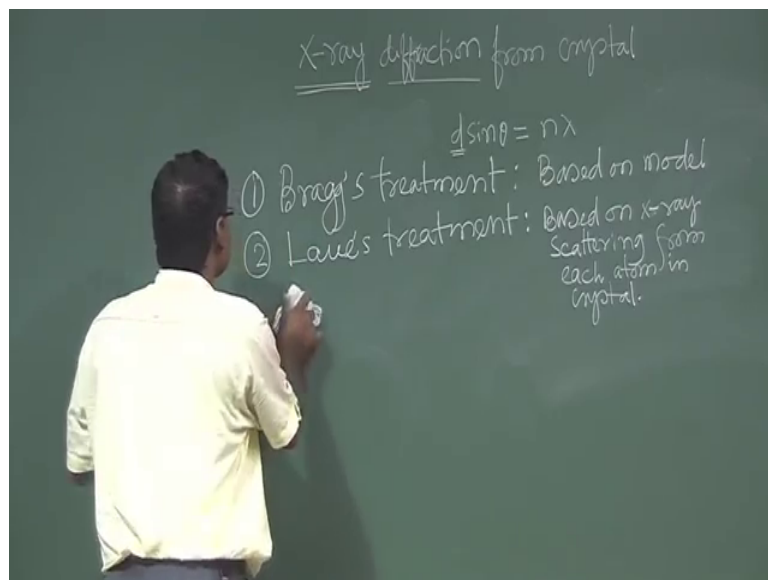 X-ray diffraction from crystal
d sinθ = nλ
① Bragg's treatment: Based on model
② Laue's treatment: Based on x-ray
scattering from
each atom in
crystal.